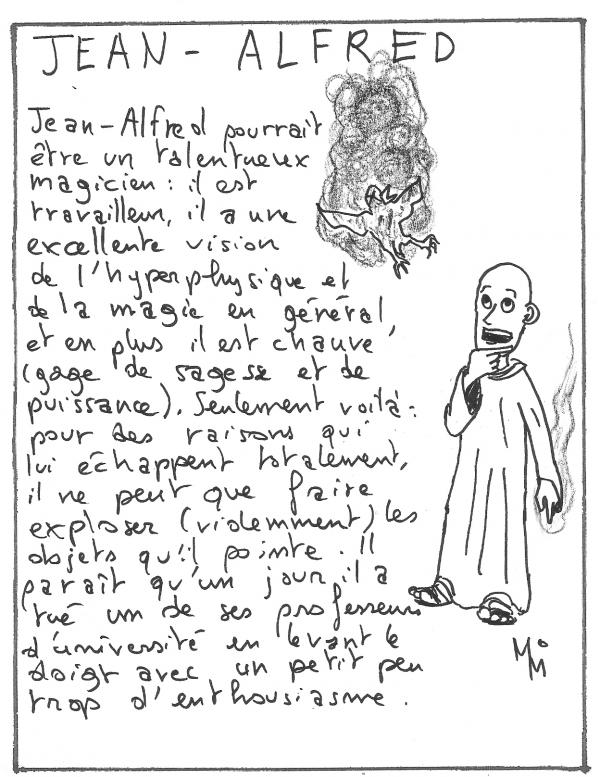 JEAN-ALFRED
Jean-Alfred pourrait
être un talentueux
magicien : il est
travailleur, il a une
excellente vision
de l'hyperphysique et
de la magie en général,
et en plus il est chauve
(gage de sagesse et de
puissance). Seulement voilà :
pour des raisons qui
lui échappent totalement,
il ne peut que faire
exploser (violemment) les
objets qu'il pointe. Il
paraît qu'un jour il a
tué un de ses professeurs
d'université en levant le
doigt avec un petit peu
trop d'enthousiasme.